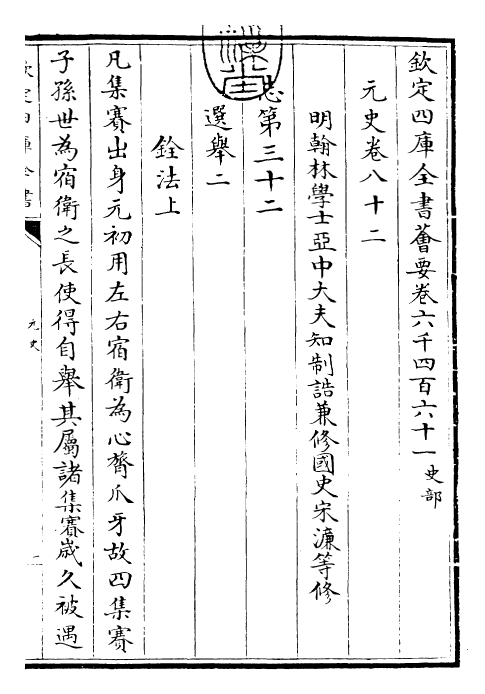 欽定四庫全書薈要卷六千四百六十一史部
元史卷八十二
明翰林學士亞中大夫知制誥兼修國史宋濂等修
志第三十二
選舉二
銓法上
凡集賽出身元初用左右宿衛為心膂爪牙故四集賽
子孫世為宿衛之長使得自舉其屬諸集賽歲久被遇
欽定四庫全書
元史